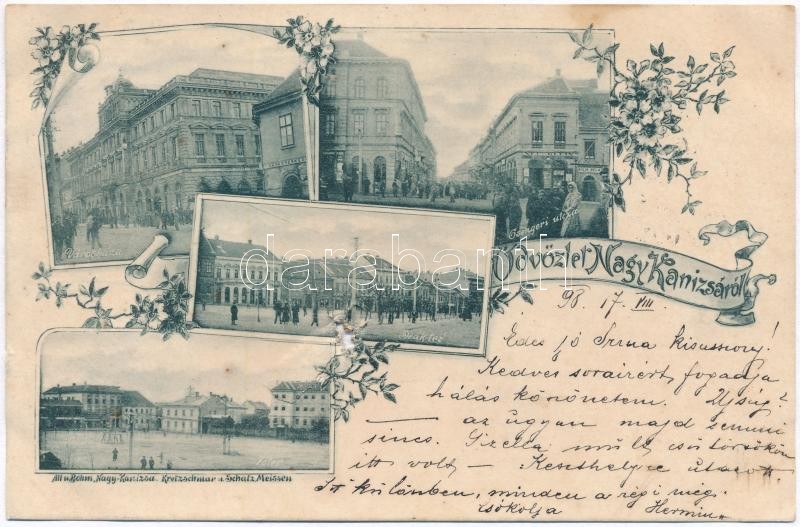 Városháza
Csengeri utcza
darabanth.com
Üdvözlet Nagy Kanizsáról
98. 17. VIII.
Édes jó Irma kisasszony!
Kedves soraiért, fogadja
hálás köszönetem. Újság?
— az ugyan majd semmi
sincs. Gizella múlt csütörtökön
itt volt — Keszthelyre utazott.
Itt különben, minden a régi még.
csókolja Hermin
Alt u. Böhm, Nagy-Kanizsa. Kretzschmar u. Schatz, Meissen